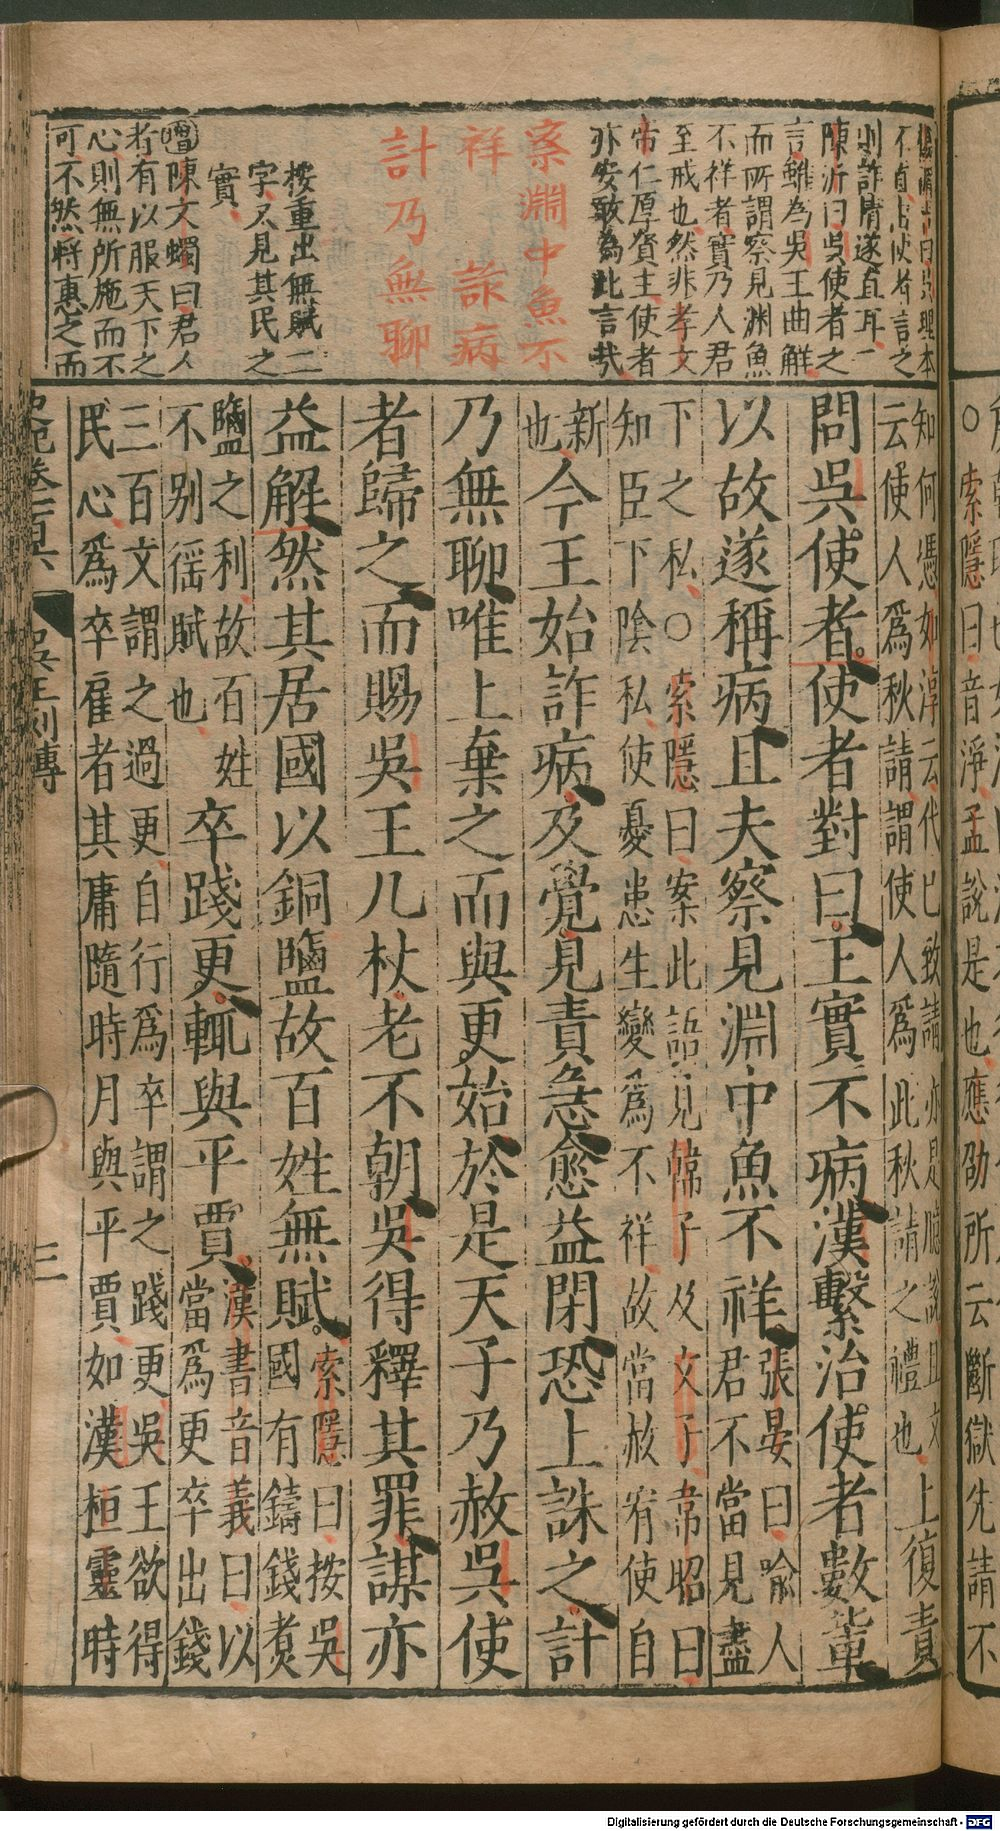 不直占使者言之
則詐情遂直耳一
陳沂曰吳使者之
言雖為吳王曲解
而所謂察見渊魚
不祥者實乃人君
至戒也然非孝文
帝仁厚資主使者
亦安敢為此言哉
察淵中魚不
祥 詠病
計乃無聊
按重出無賦二
字以見其民之
實
增陳文蠋曰君人
者有以服天下之
心則無所施而不
可不然將惠之而
知何憑如淳云代已致請亦是臆說且文
云使人爲秋請謂使人爲此秋請之禮也
上復責
問吳使者使者對曰王實不病漢繫治使者數輩
以故遂稱病且夫察見淵中魚不祥
張晏曰喻人
君不當見盡
下之私○索隱曰案此語見韓子及文子韋昭曰
知臣下陰私使憂患生變爲不祥故當赦宥使自
新
也
今王始詐病及覺見責急愈益閉恐上誅之計
乃無聊唯上棄之而與更始於是天子乃赦吳使
者歸之而賜吳王几杖老不朝吳得釋其罪謀亦
益解然其居國以銅鹽故百姓無賦
索隱曰按吳
國有鑄錢煑
鹽之利故百姓
不别徭賦也
卒踐更輒與平賈
漢書音義曰以
當爲更卒出錢
三百文謂之過更自行爲卒謂之踐更吳王欲得
民心爲卒雇者其庸隨時月與平賈如漢桓靈時
史記卷一百六 吳王列傳 三
○索隱曰音淨孟說是也應劭所云斷獄先請不
Digitalisierung gefördert durch die Deutsche Forschungsgemeinschaft - DFG